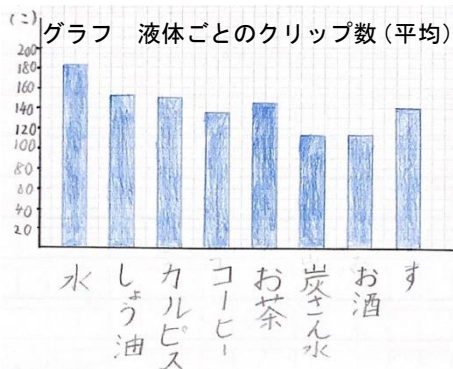 (こ)
グラフ 液体ごとのクリップ数(平均)
200
180
160
140
120
100
80
60
40
20
水
しょう油
カルピス
コーヒー
お茶
炭さん水
お酒
す